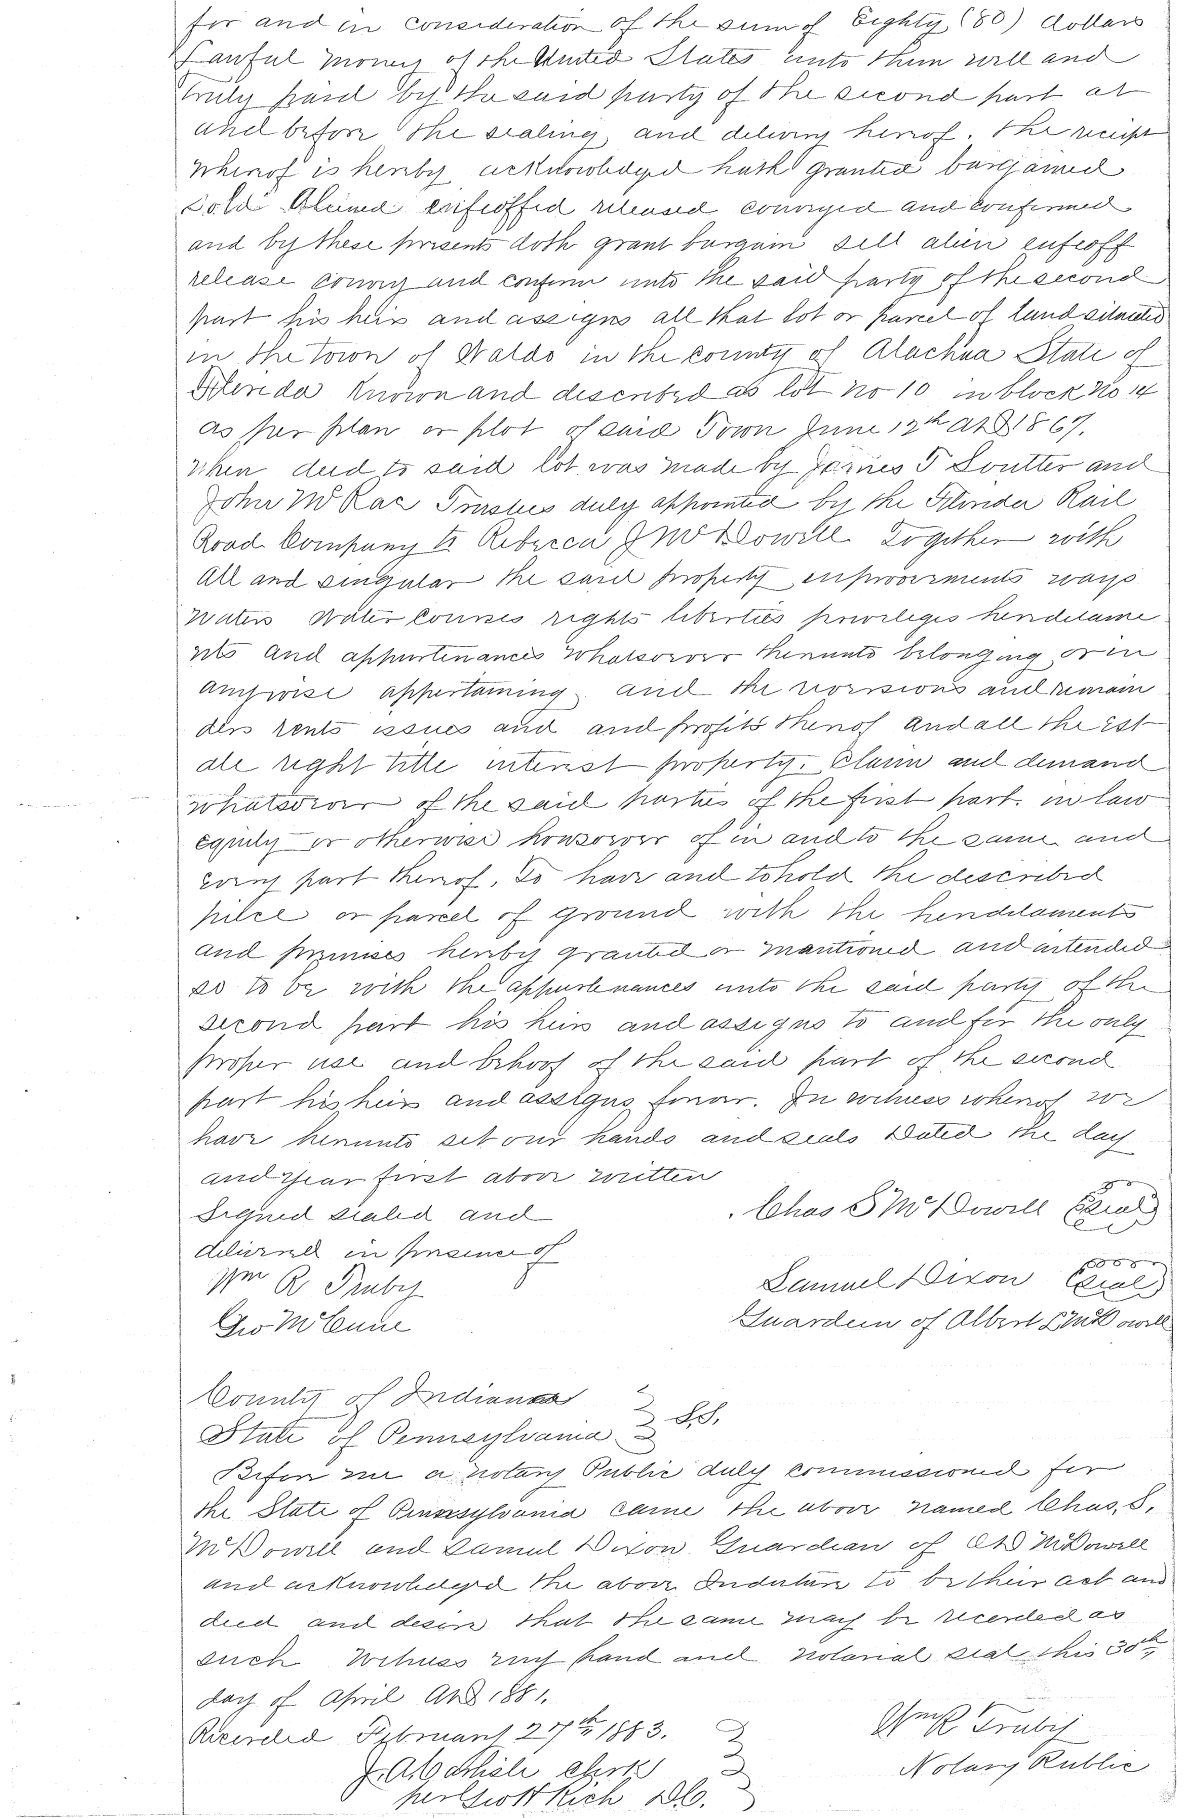 for and in consideration of the sum of Eighty (80) dollars
Lawful money of the United States unto them well and
truly paid by the said party of the second part at
and before the sealing and delivery hereof. the receipt
whereof is hereby acknowledged hath granted bargained
sold Aliened enfeoffed released conveyed and confirmed
and by these presents doth grant bargain sell alien enfeoff
release convey and confirm unto the said party of the second
part his heirs and assigns all that lot or parcel of land situated
in the town of Waldo in the county of Alachua State of
Florida Known and described as lot no 10 in block no 14
as per plan or plot of said Town June 12th AD 1867.
when deed to said lot was made by James T Soutter and
John McRae Trustees duly appointed by the Florida Rail
Road Company to Rebecca J McDowell Together with
all and singular the said property improvements ways
waters water courses rights liberties privileges herdetame
nts and appurtenances whatsoever thereunto belonging or in
anywise appertaining and the reversions and remain
ders rents issues and and profits thereof and all the est
ate right title interest property. Claim and demand
whatsoever of the said parties of the first part. in law
equity or otherwise howsoever of in and to the same and
every part thereof. To have and to hold the described
piece or parcel of ground with the herdetaments
and premises hereby granted or mantioned and intended
so to be with the appurtenances unto the said party of the
second part his heirs and assigns to and for the only
proper use and behoof of the said part of the second
part his heirs and assigns forever. In witness whereof we
have hereunto set our hands and seals Dated the day
and year first above written
Signed sealed and
Chas S McDowell (Seal)
delivered in presence of
Wm R Truby
Samuel Dixon (Seal)
Geo McCune
Guardian of Albert L McDowell
County of Indiana
State of Pennsylvania } S.S.
Before me a notary Public duly commissioned for
the State of Pennsylvania came the above named Chas. S.
McDowell and Samuel Dixon Guardian of McDowell
and acknowledged the above Indenture to be their act and
deed and desire that the same may be recorded as
such Witness my hand and notarial seal this 30th
day of April AD 1881.
Wm R Truby
Recorded February 27th 1883.
Notary Public
J. A. Carlisle Clerk
per Rich D.C.